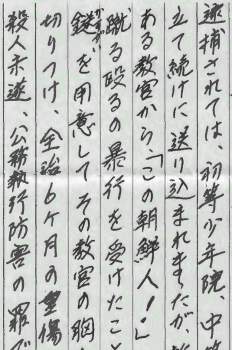 逮捕されては、初等少年院、中等
立て続けに送り込まれましたが、
ある教官から「この朝鮮人！」
蹴る殴るの暴行を受けたこと
鑢を用意してその教官の胸
切りつけ、全治6ケ月の重傷
殺人未遂、公務執行防害の罪で